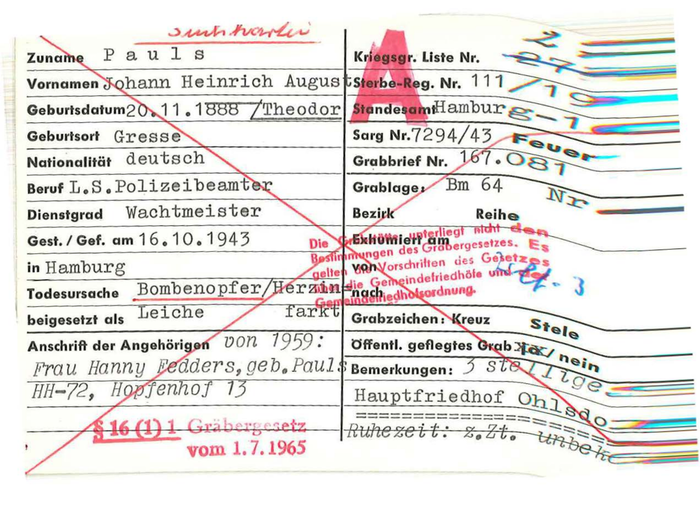 Suchkartei
Zuname Pauls
Vornamen Johann Heinrich August
Geburtsdatum 20.11.1888 /Theodor
Geburtsort Gresse
Nationalität deutsch
Beruf L.S.Polizeibeamter
Dienstgrad Wachtmeister
Gest. / Gef. am 16.10.1943
in Hamburg
Todesursache Bombenopfer/Herzin-
beigesetzt als Leiche farkt
Anschrift der Angehörigen von 1959:
Frau Hanny Fedders, geb. Pauls
HH-72, Hopfenhof 13
§ 16 (1) 1 Gräbergesetz
vom 1.7.1965
A
Kriegsgr. Liste Nr. 27 2
Sterbe-Reg. Nr. 111/19
Standesamt Hamburg-1
Sarg Nr. 7294/43 Feuer
Grabbrief Nr. 167.081
Grablage: Bm 64 Nr
Bezirk Reihe
Exhumiert am
von
nach
Die Grabstätte unterliegt nicht den
Bestimmungen des Gräbergesetzes. Es
gelten die Vorschriften des Gesetzes
über die Gemeindefriedhöfe und der
Gemeindefriedhofsordnung.
Grabzeichen: Kreuz Stele
Öffentl. gepflegtes Grab ja / nein
Bemerkungen: 3 stellige
Hauptfriedhof Ohlsdo
Ruhezeit: z.Zt. unbek